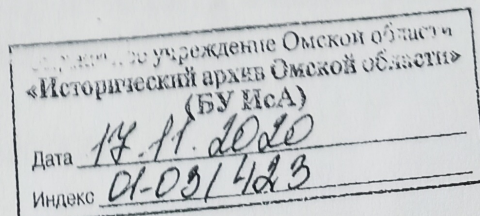 учреждение Омской области
«Исторический архив Омской области»
(БУ ИсА)
Дата 17.11.2020
Индекс 01-03/423